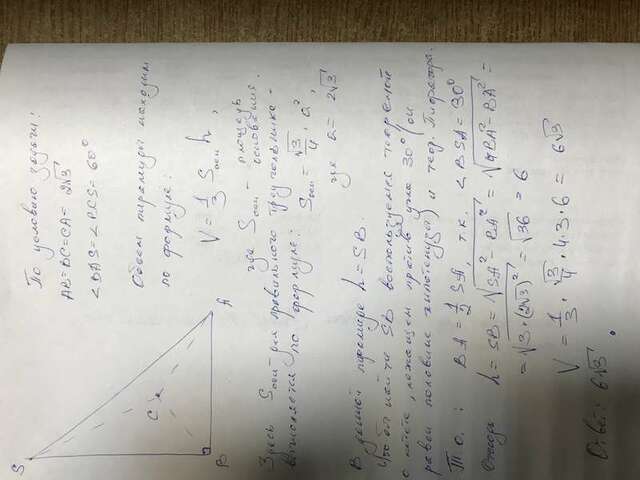 S
C
B
A
По условию задачи:
AB=BC=CA= 2√3
∠BAS=∠BCS=60°
Объем пирамиды находим
по формуле:
V = 1/3 Sосн h,
где Sосн - площадь
основания.
Здесь Sосн - для правильного треугольника -
вычисляется по формуле:
Sосн = √3/4 · a²,
где a = 2√3
В данной пирамиде h = SB.
Чтобы найти SB воспользуемся теоремой
о катете, лежащем против угла 30° (он
равен половине гипотенузы) и теор. Пифагора.
Т.о.: BA = 1/2 SA, т.к. ∠BSA = 30°
Отсюда h = SB = √(SA² - BA²) = √(4BA² - BA²) =
= √(3·(2√3)²) = √36 = 6
V = 1/3 · √3/4 · 4·3·6 = 6√3
Ответ: 6√3.